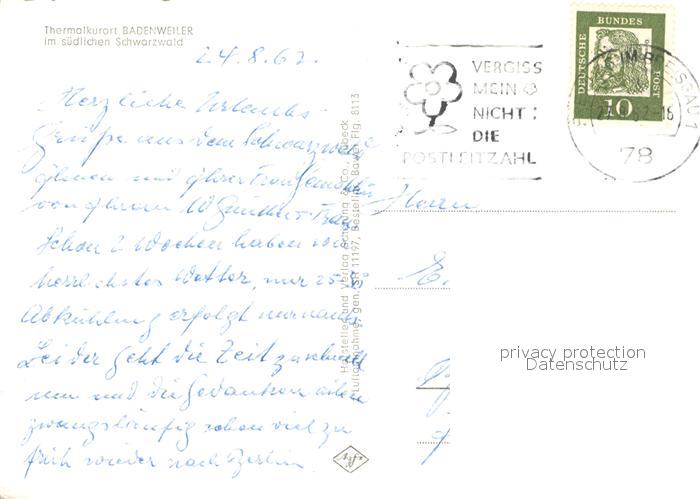 Thermalkurort BADENWEILER
im südlichen Schwarzwald
24.8.62.
Herzliche Urlaubs-
Grüße aus dem Schwarzwald
Ihnen und Ihrer Frau Gemahlin
von Ihrem
Schon 2 Wochen haben wir
herrlichstes Wetter, nur
Abkühlung erfolgt nur nachts.
Leider geht die Zeit zu schnell
um und die Gedanken eilen
zwangsläufig schon viel zu
früh wieder nach Berlin.
Hersteller und Verlag Schöning & Co., Lübeck
Luftaufnahme: gen. 11197, Bestell-Nr. Bawei Flg. 8113
Agfa
VERGISS
MEIN
NICHT:
DIE
POSTLEITZAHL
DEUTSCHE BUNDESPOST
10
78
Herrn
E.
privacy protection
Datenschutz